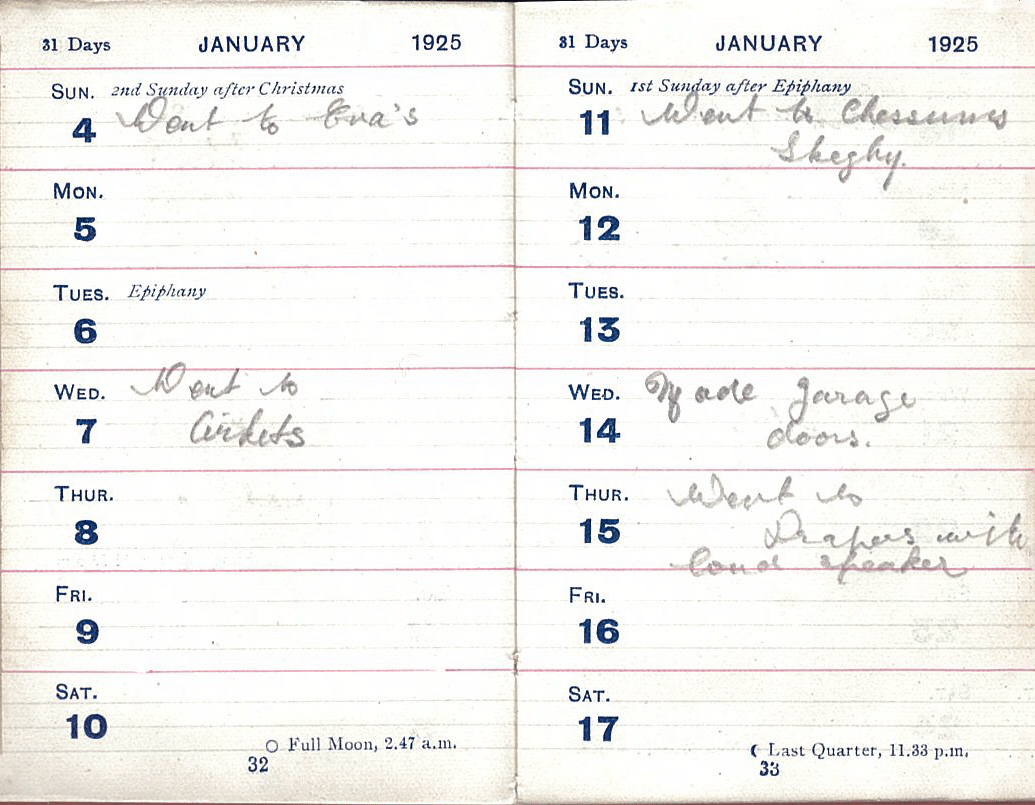 31 Days JANUARY 1925
SUN. 2nd Sunday after Christmas
4 Went to Eva's
MON.
5
TUES. Epiphany
6
WED. Went to
7
THUR.
8
FRI.
9
SAT.
10
○ Full Moon, 2.47 a.m.
32
31 Days JANUARY 1925
SUN. 1st Sunday after Epiphany
11 Went to
Skegby.
MON.
12
TUES.
13
WED. Made garage
14 doors.
THUR. Went to
15 Drapers with
loud speaker
FRI.
16
SAT.
17
☾ Last Quarter, 11.33 p.m.
33